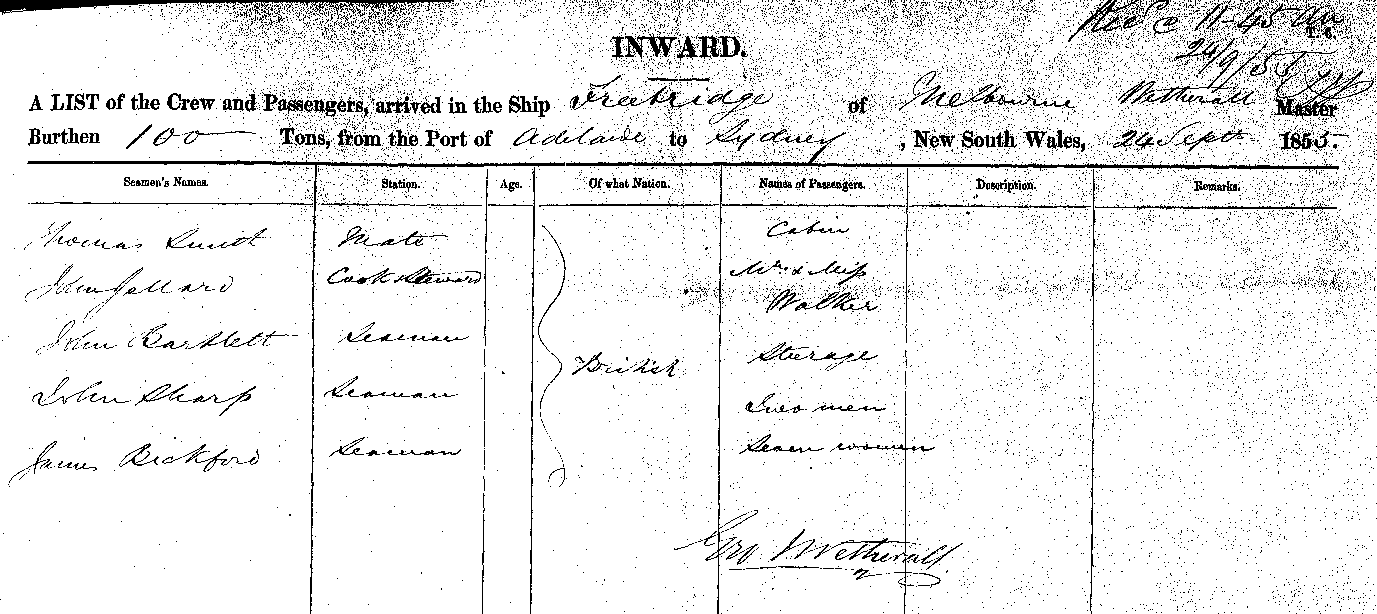 Rec'd 11-45 am
24/9/55
INWARD.
A LIST of the Crew and Passengers, arrived in the Ship Freebridge of Melbourne Wetherall Master
Burthen 100 Tons, from the Port of Adelaide to Sydney, New South Wales, 24 Sept 1855.
Seamen's Names. Station. Age. Of what Nation. Names of Passengers. Description. Remarks.
Thomas Mate Cabin
John Cook & Steward Mr. & Miss
Walker
John Bartlett Seaman Steerage
British
John Sharp Seaman Two men
James Bickford Seaman Seven women
Geo Wetherall